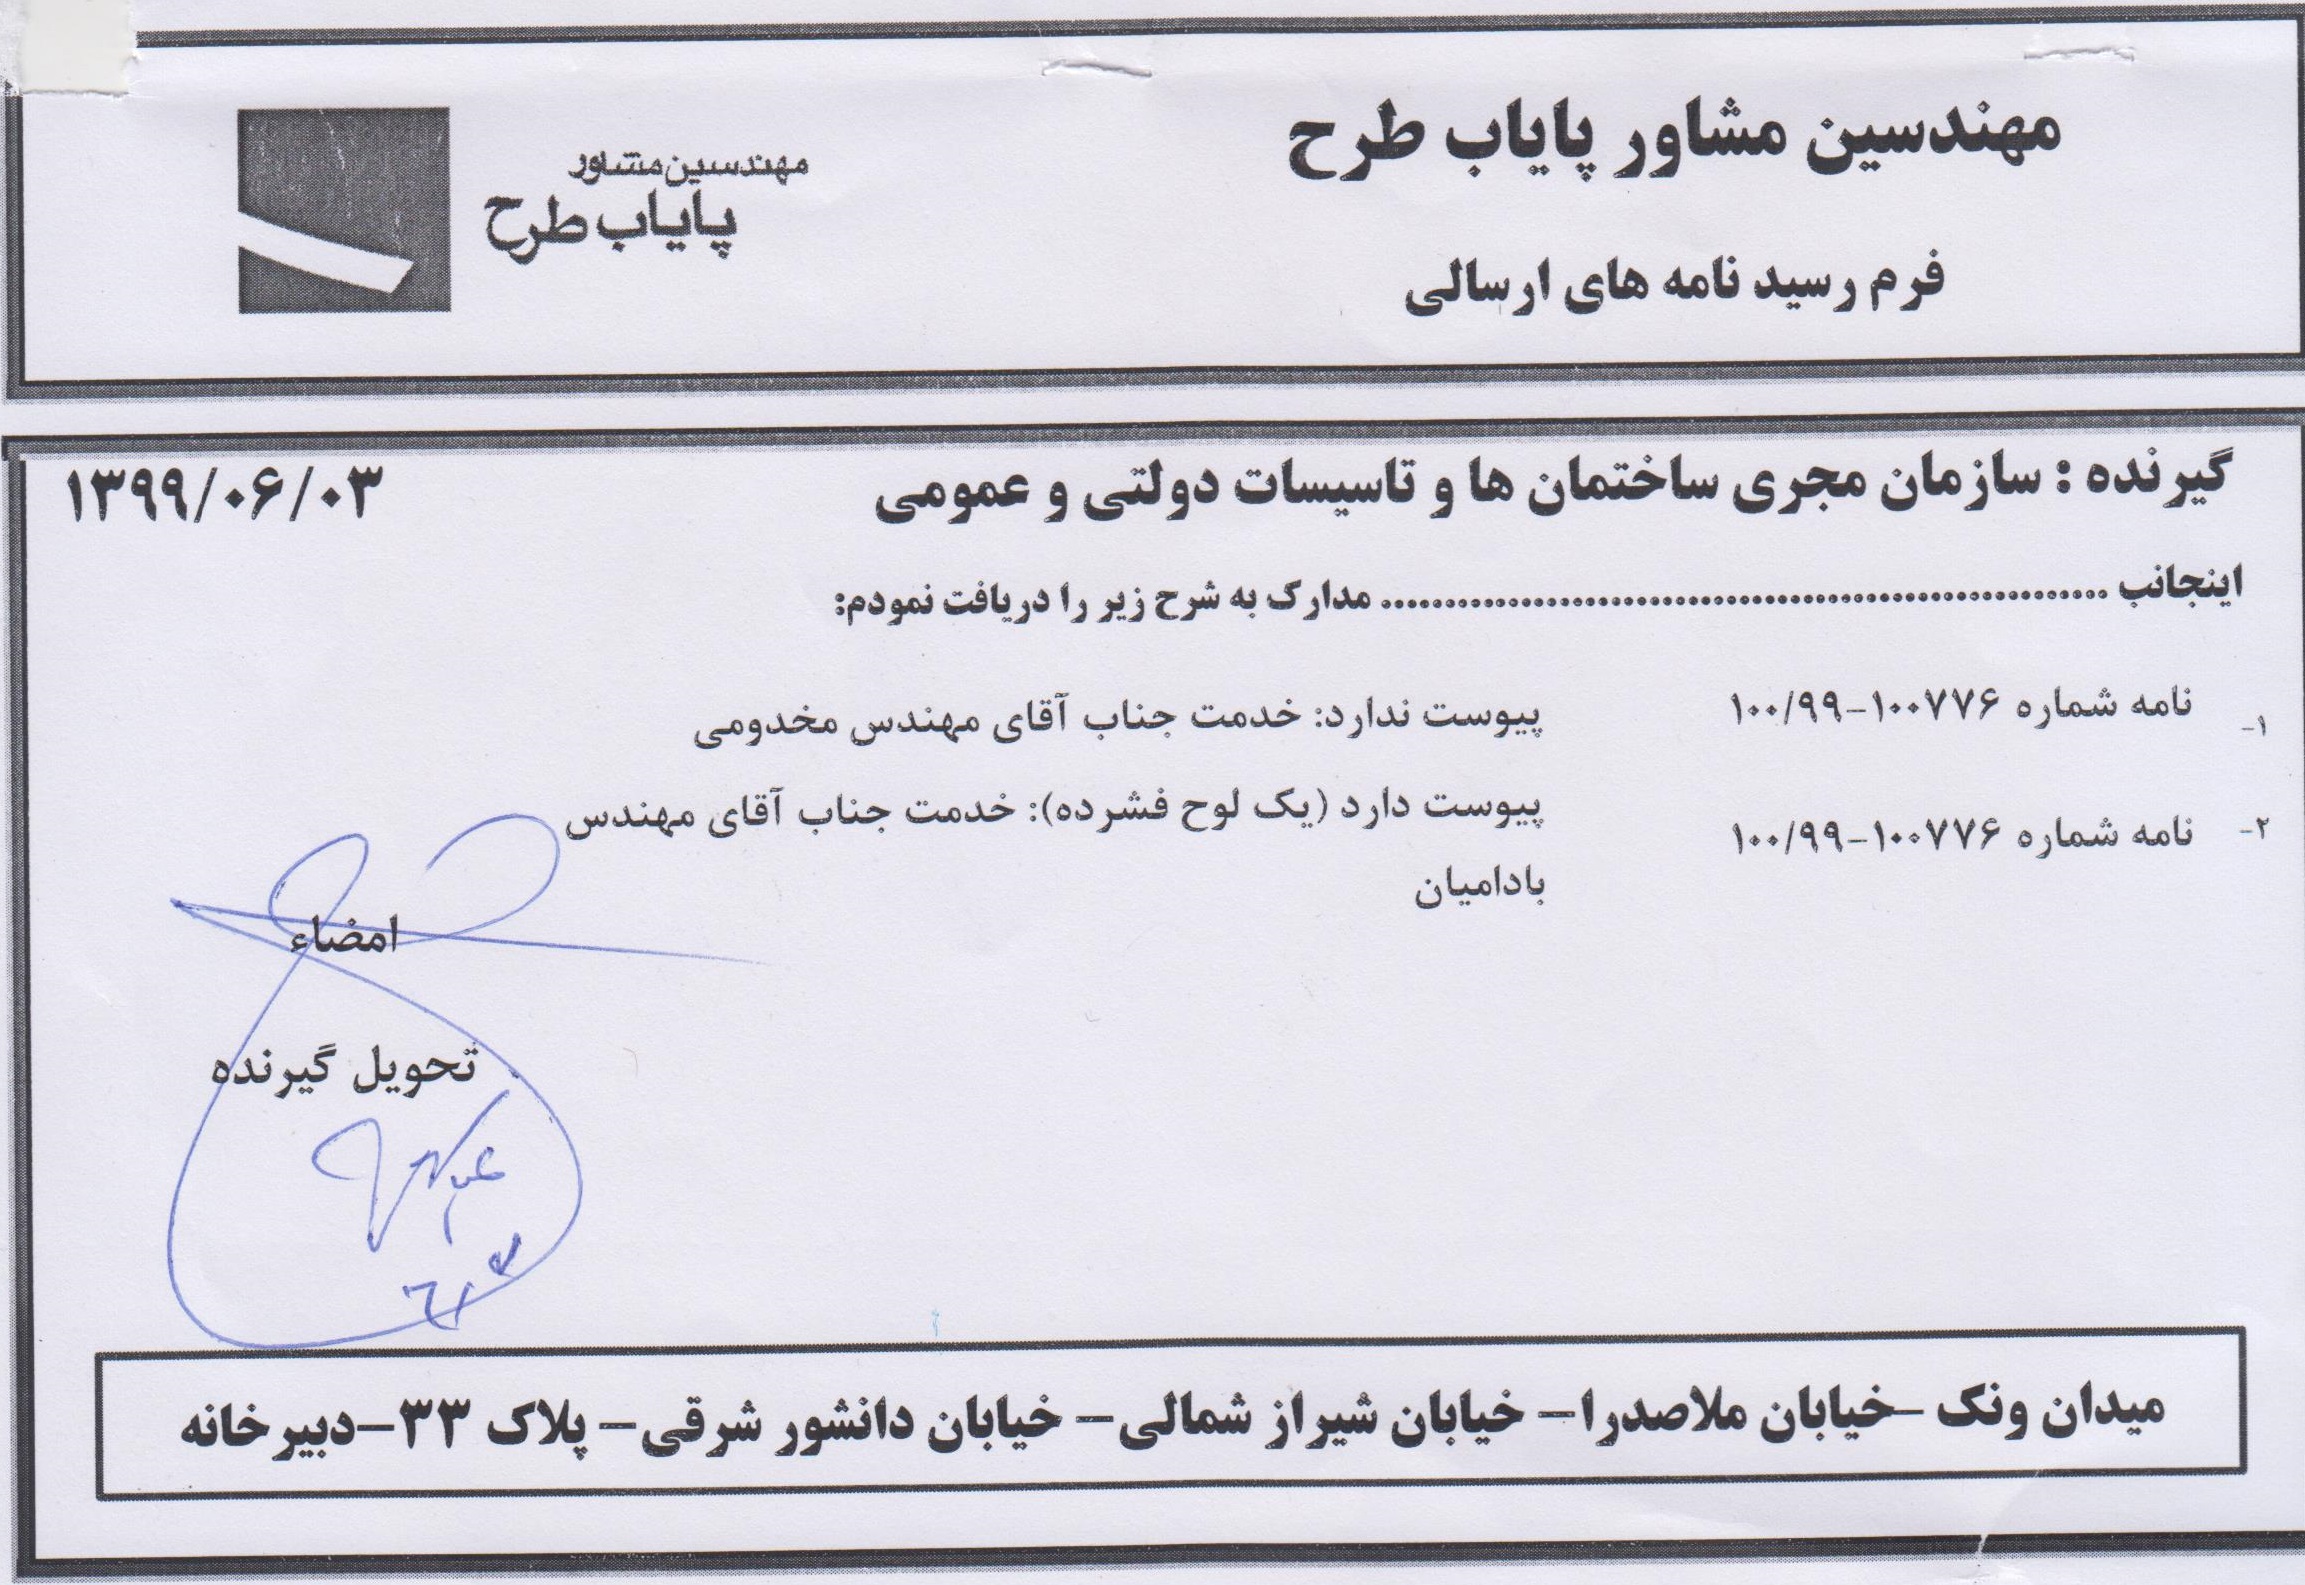 مهندسین مشاور پایاب طرح
مهندسین مشاور
پایاب طرح
فرم رسید نامه های ارسالی
گیرنده : سازمان مجری ساختمان ها و تاسیسات دولتی و عمومی
۱۳۹۹/۰۶/۰۳
اینجانب ........................................................ مدارک به شرح زیر را دریافت نمودم:
۱- نامه شماره ۱۰۰/۹۹-۱۰۰۷۷۶ پیوست ندارد: خدمت جناب آقای مهندس مخدومی
۲- نامه شماره ۱۰۰/۹۹-۱۰۰۷۷۶ پیوست دارد (یک لوح فشرده): خدمت جناب آقای مهندس
بادامیان
امضاء
تحویل گیرنده
میدان ونک –خیابان ملاصدرا– خیابان شیراز شمالی– خیابان دانشور شرقی– پلاک ۳۳–دبیرخانه